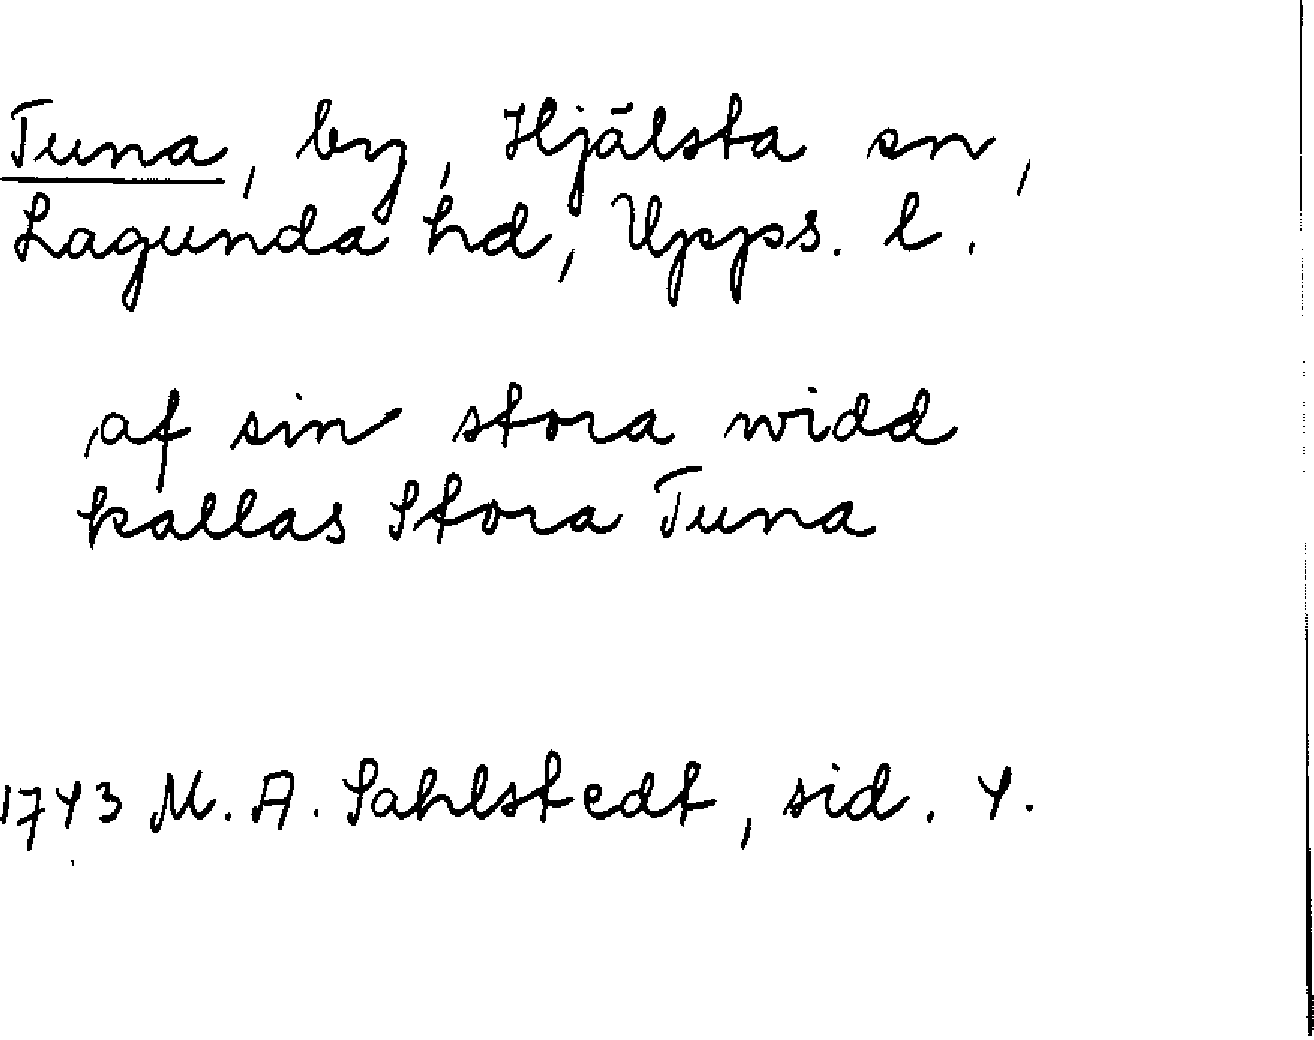 Tuna, by, Hjälsta sn,
Lagunda hd, Upps. l.
af sin stora widd
kallas Stora Tuna
1743 M. A. Sahlstedt, sid. 4.